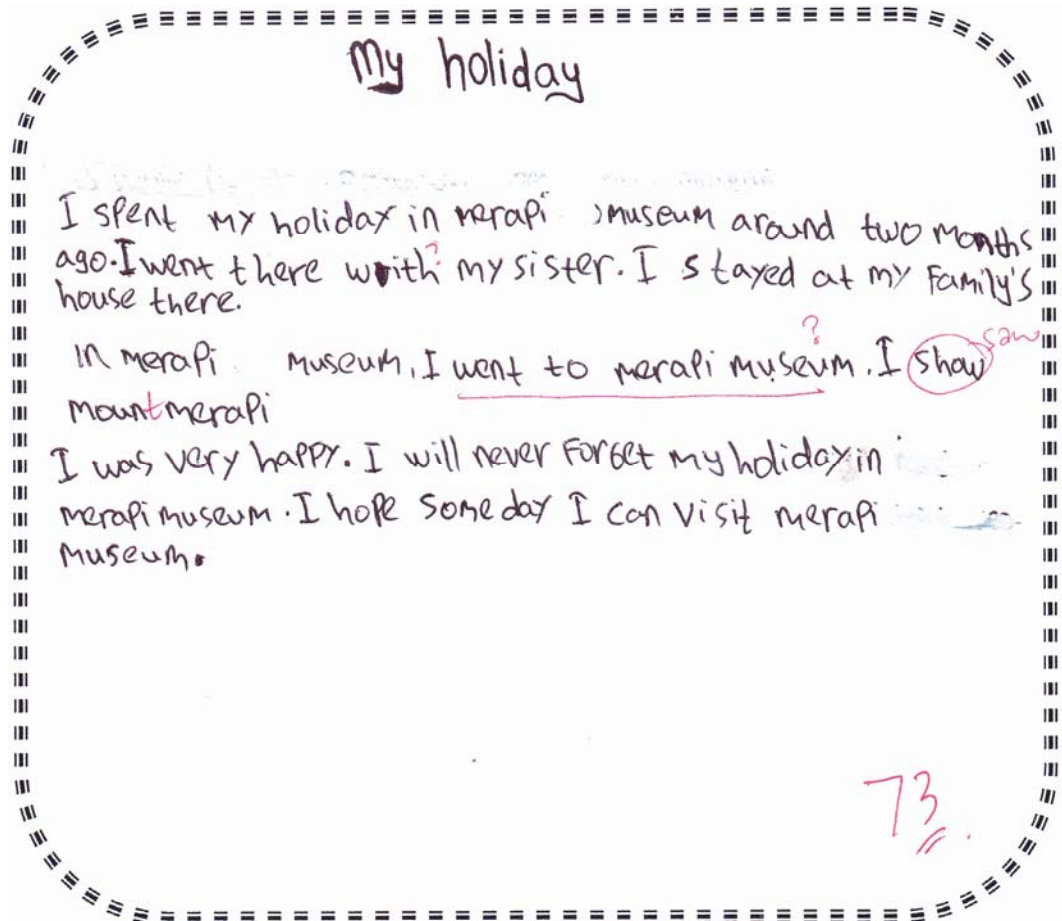 My holiday
I spent my holiday in merapi museum around two months
ago. I went there with my sister. I stayed at my Family's
?
house there.
?
saw
In merapi museum, I went to merapi museum. I show
mount merapi
I was very happy. I will never Forget my holiday in
merapi museum. I hope someday I can visit merapi
museum.
73